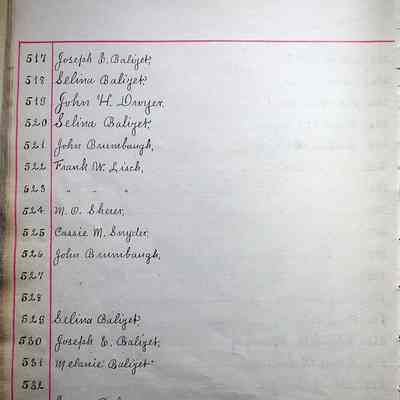 517 Joseph E. Baliget.
518 Selina Baliget.
519 John H. Dwyer.
520 Selina Baliget.
521 John Brumbaugh.
522 Frank W. Lisch.
523 " " "
524 M. O. Sherer.
525 Cassie M. Snyder.
526 John Brumbaugh.
527
528
529 Selina Baliget.
530 Joseph E. Baliget.
531 Melanie Baliget
532